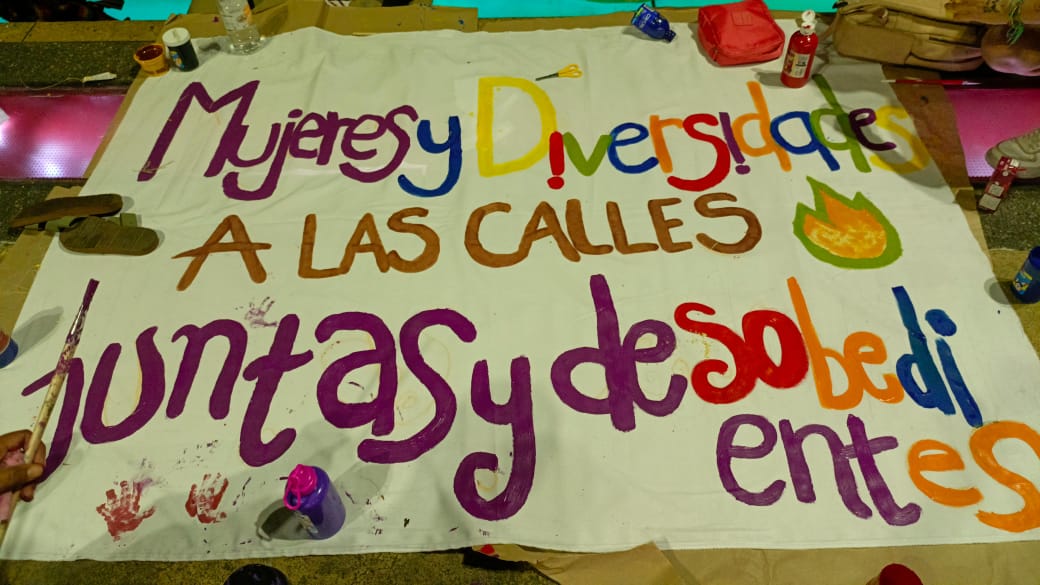 Mujeres y Diversidades
A LAS CALLES
Juntas y desobedi
entes